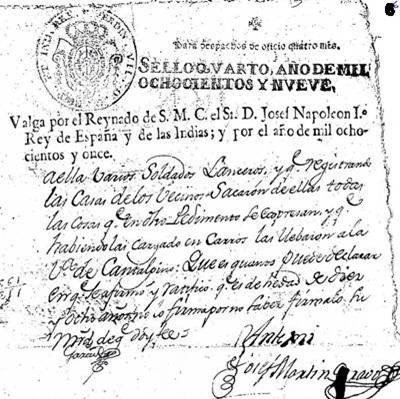 HISP. ET IND. REX. FERDIN. VII. D.
Para despachos de oficio quatro mrs.
SELLO QVARTO, AÑO DE MIL
OCHOCIENTOS Y NVEVE,
Valga por el Reynado de S. M. C. el Sr. D. Josef Napoleon I.º
Rey de España y de las Indias; y por el año de mil ocho-
cientos y once.
aella varios Soldados Lanceros, y q.e registrando
las Casas de los Vecinos Sacaron de ellas todas
las Cosas q.e en dho Pedimento se expresan, y q.e
habiendolas cargado en Carros las llebaron a la
V.a de Que es quanto puede declarar
en q.e se afirmó y ratificó q.e es de hedad de diez
y ocho años no lo firma por no saber firmalo su
mrd de q.e doy fee
Garcia
Ante mi
Josef Martin